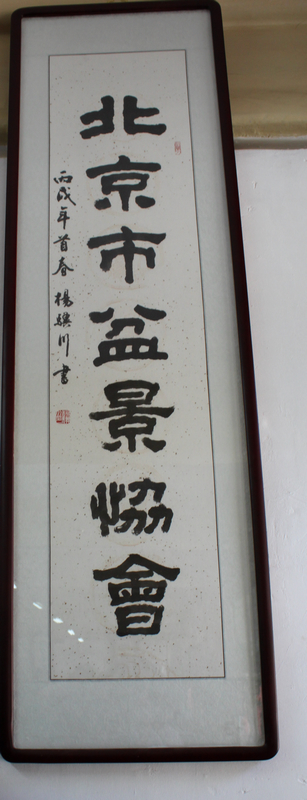 北京市盆景協會
丙戌年首春楊驥川書